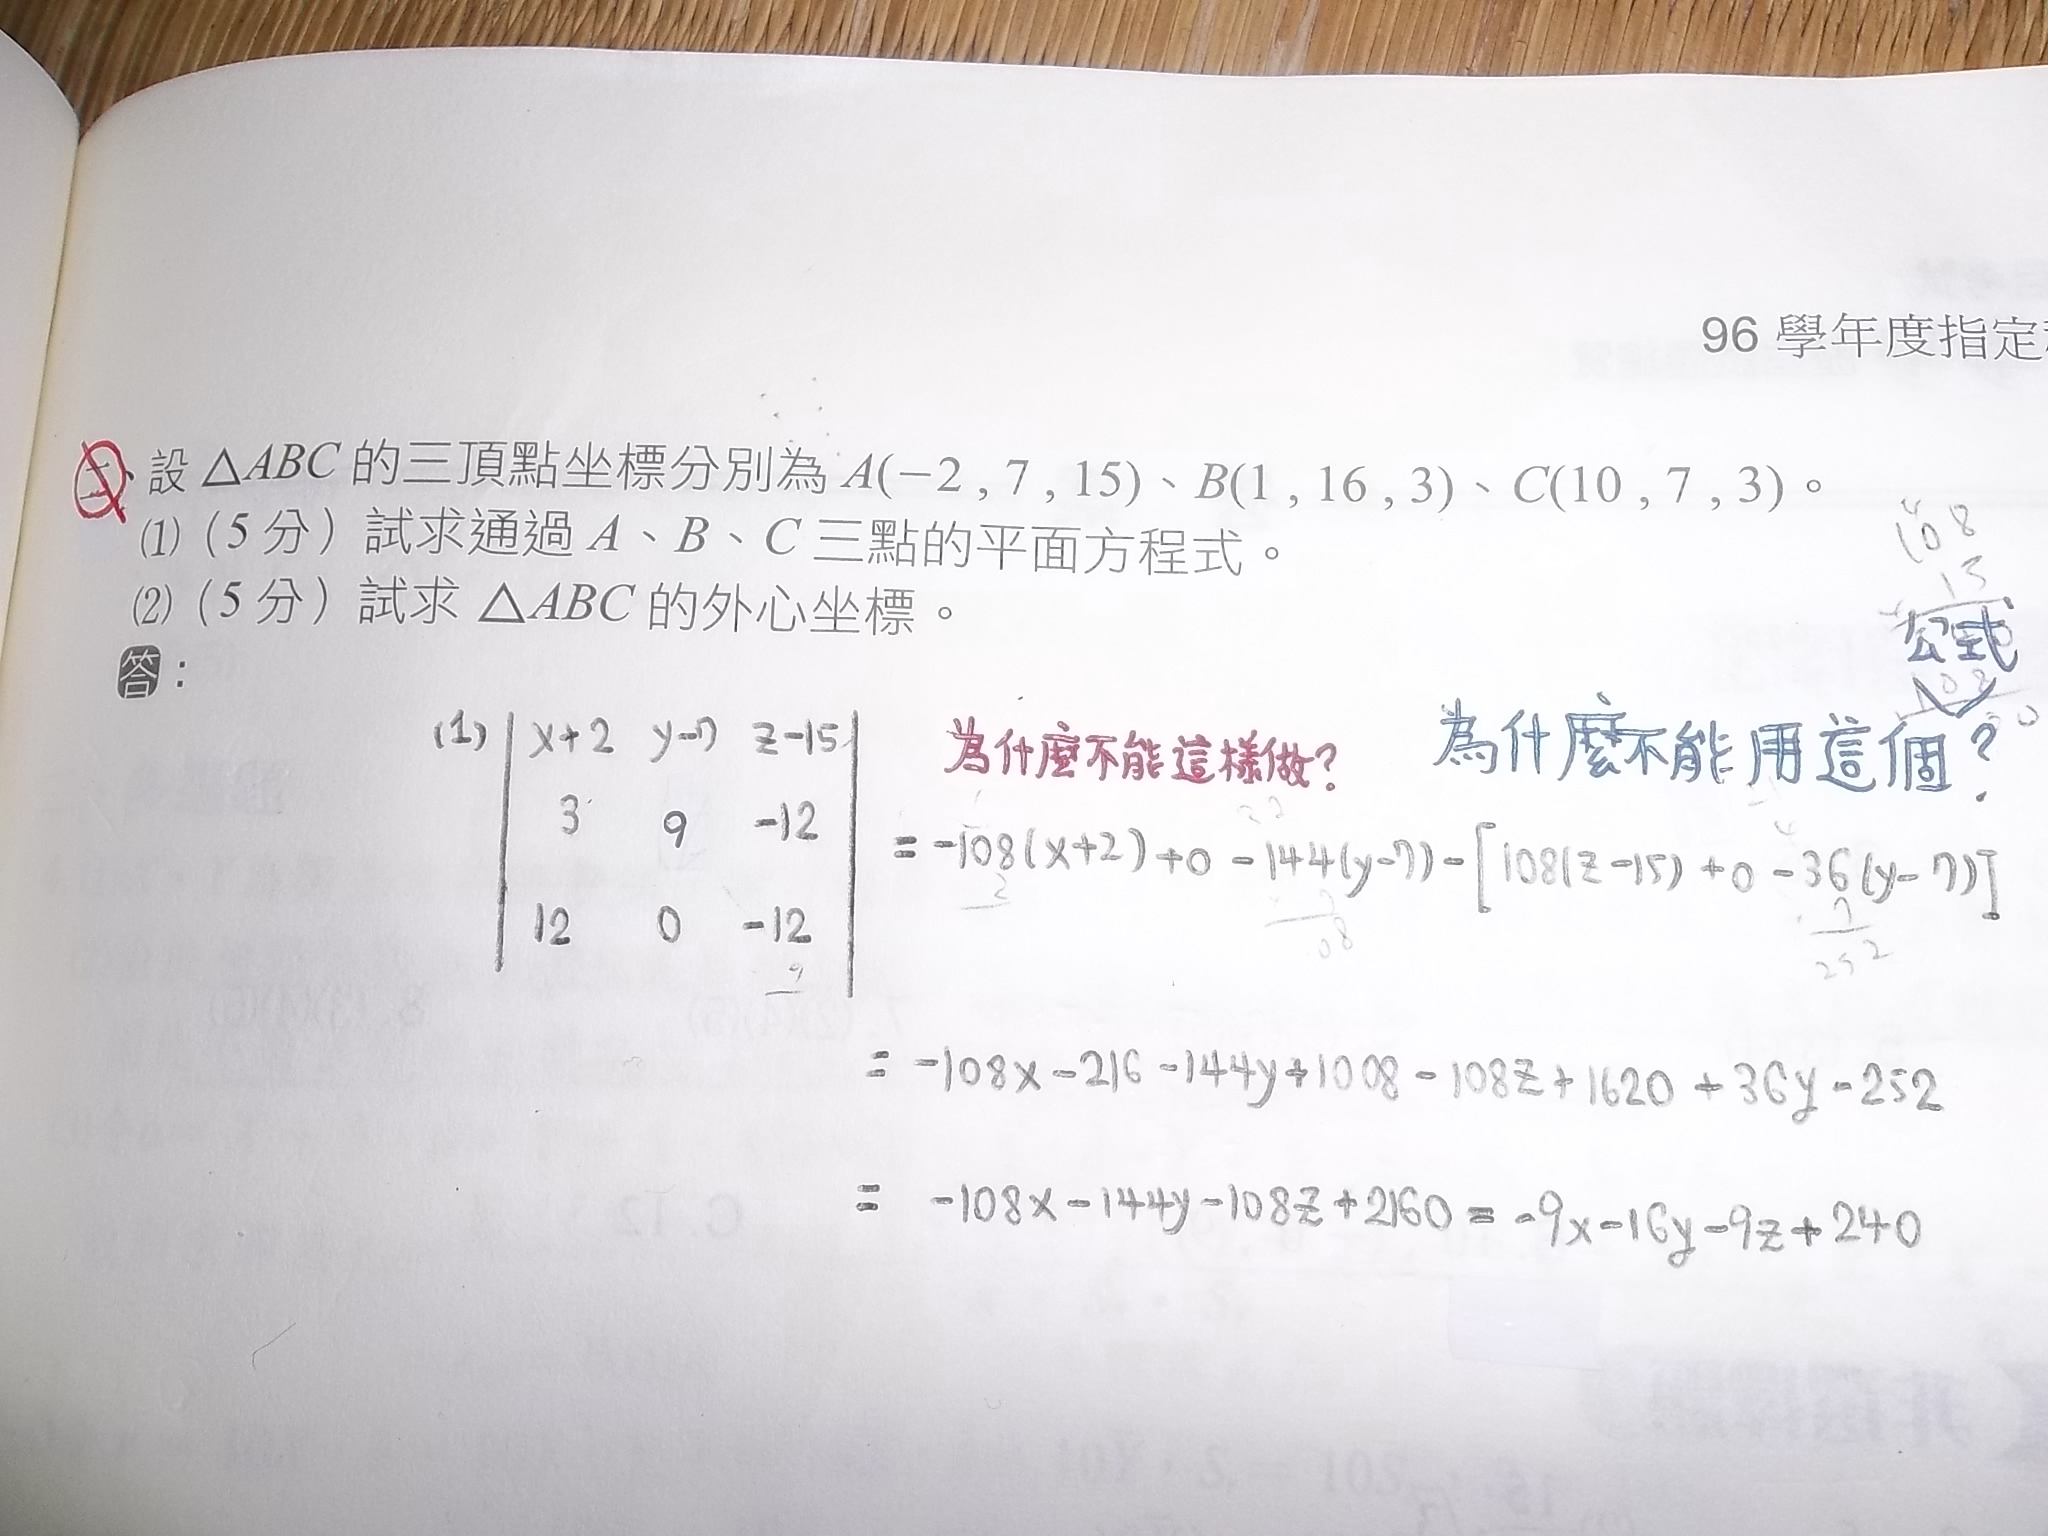 96 學年度指定
二、設 △ABC 的三頂點坐標分別為 A(−2 , 7 , 15)、B(1 , 16 , 3)、C(10 , 7 , 3)。
(1)（5 分）試求通過 A、B、C 三點的平面方程式。
(2)（5 分）試求 △ABC 的外心坐標。
答：
108
15
公式
(1) | x+2 y-7 z-15 | 為什麼不能這樣做? 為什麼不能用這個?
3 9 -12 = -108(x+2)+0-144(y-7)-[108(z-15)+0-36(y-7)]
12 0 -12
252
= -108x-216-144y+1008-108z+1620+36y-252
= -108x-144y-108z+2160 = -9x-16y-9z+240